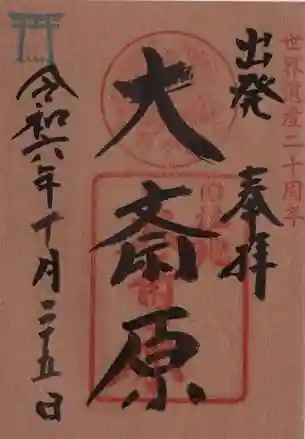 世界遺産二十周年
出発
奉拝
大斎原
令和六年十月二十五日